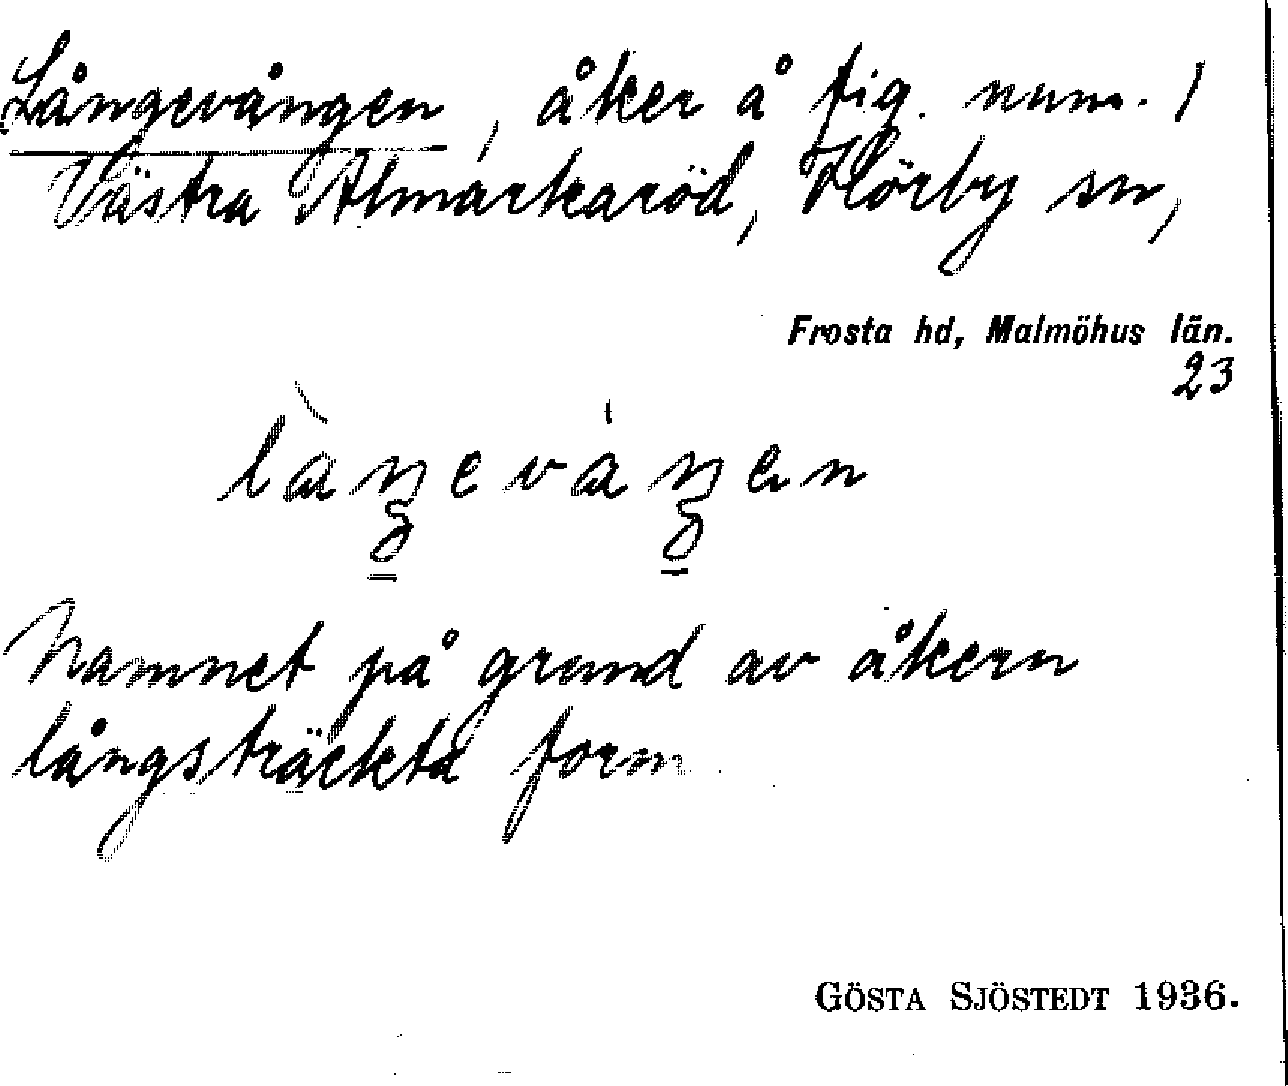 Långevången, åker å fig. num. 1
Västra Almarkaröd, Hörby sn,
Frosta hd, Malmöhus län.
23
Namnet på grund av åkern
långsträckta form.
GÖSTA SJÖSTEDT 1936.